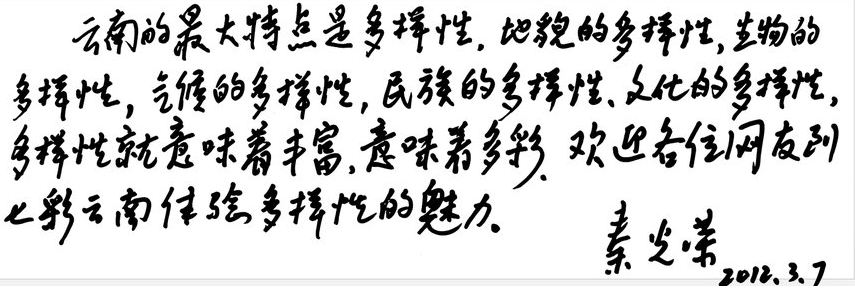 云南的最大特点是多样性,地貌的多样性,生物的
多样性,气候的多样性,民族的多样性、文化的多样性,
多样性就意味着丰富,意味着多彩.欢迎各位网友到
七彩云南体验多样性的魅力。
秦光荣
2012.3.7